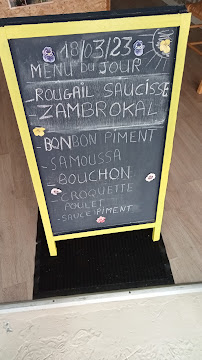 18/03/23
MENU DU JOUR
-ROUGAIL SAUCISSE
-ZAMBROKAL
-BONBON PIMENT
-SAMOUSSA
-BOUCHON
-CROQUETTE
POULET
-SAUCE PIMENT